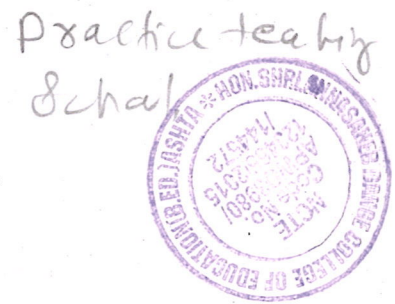 Practice teaching
School
HON. SHRI. ANNASAHEB DANGE COLLEGE OF EDUCATION (B.ED.) ASHTA
NCTE